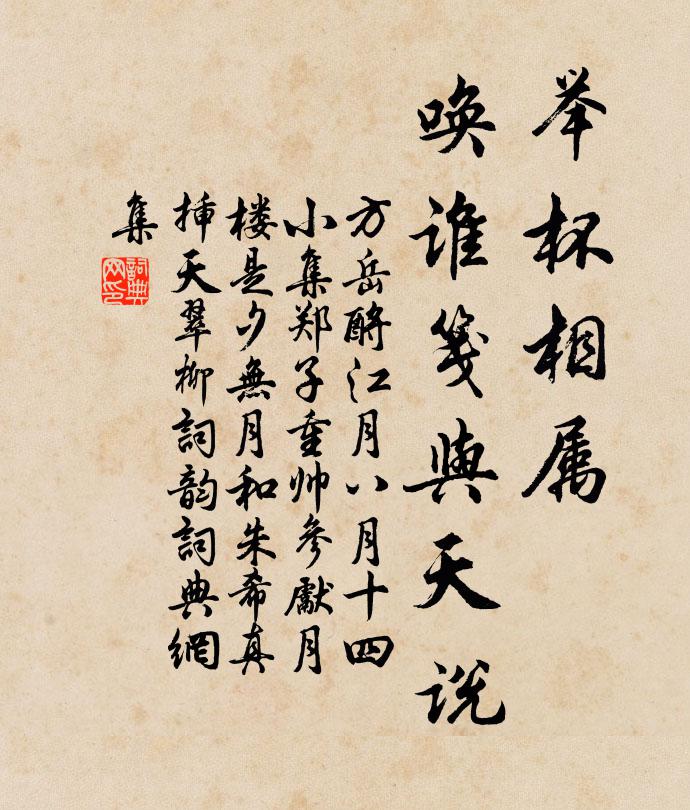 举杯相属
唤谁笺與天说
方岳酹江月八月十四
小集郑子重帅参獻月
楼是夕無月和朱希真
插天翠柳詞韵詞典網
集
詞典
网印